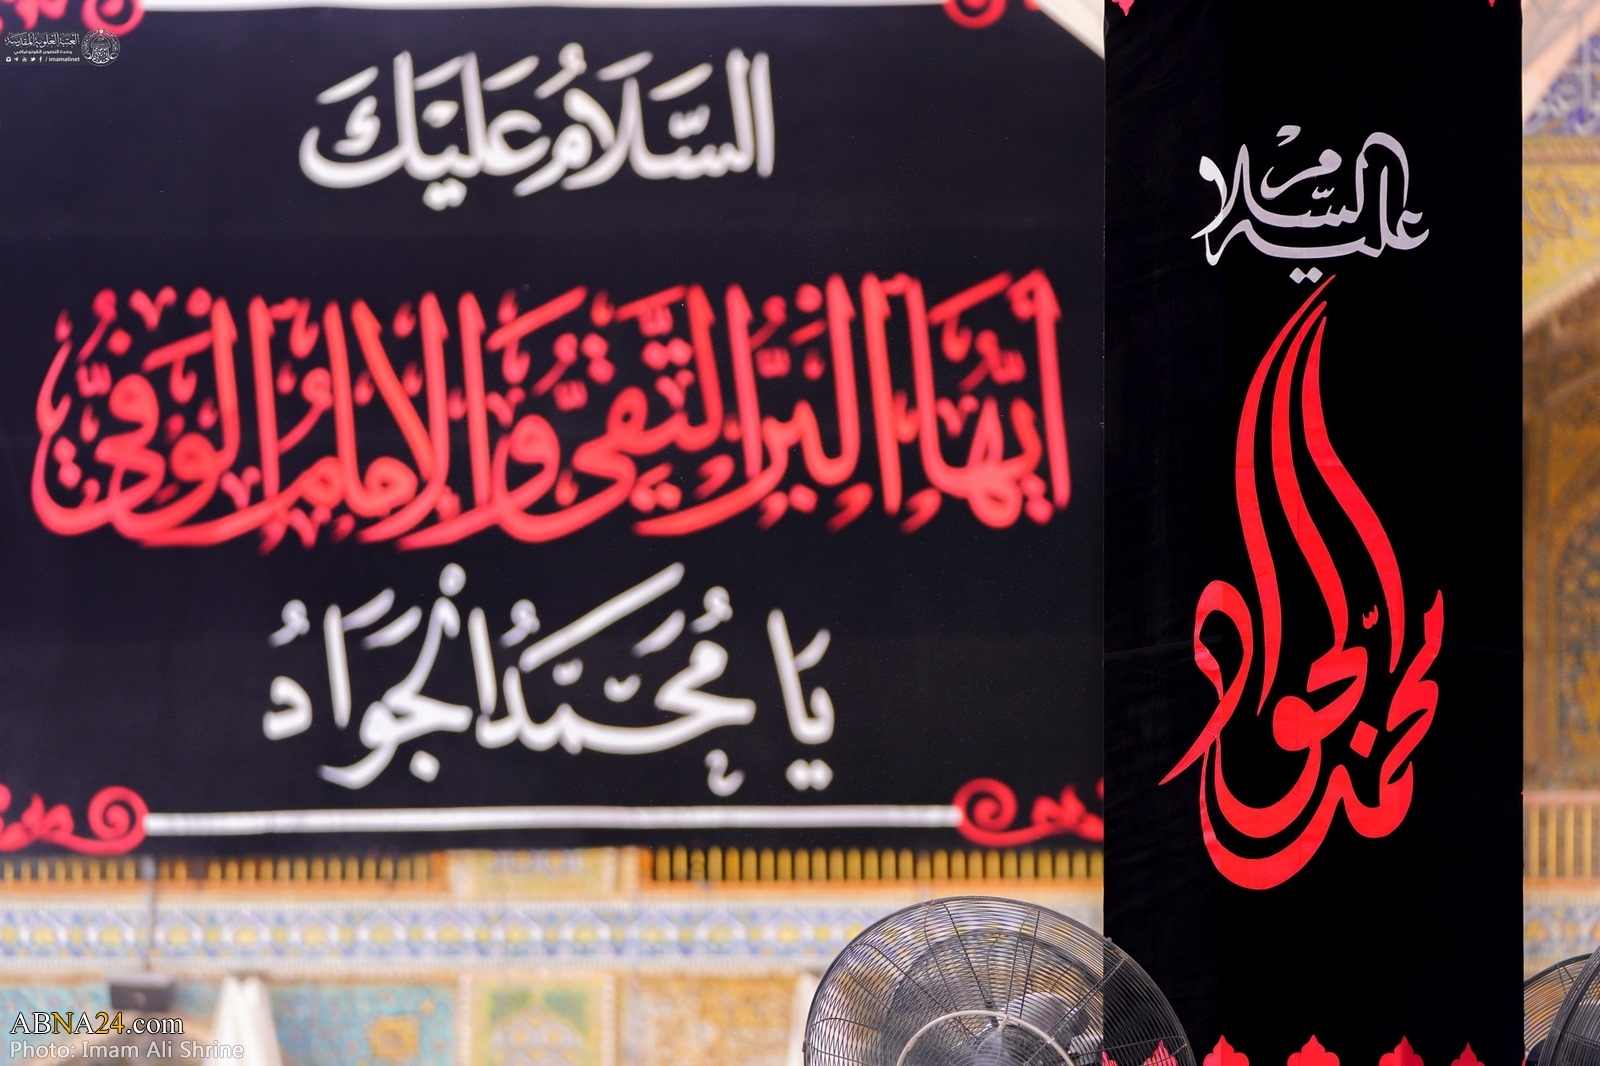 العتبة العلوية المقدسة
وحدة التصوير الفوتوغرافي
/ imamalinet
السَّلَامُ عَلَيْكَ
أَيُّهَا الْبَرُّ التَّقِيُّ وَالإِمَامُ الْوَفِيُّ
يَا مُحَمَّدُ الْجَوَادُ
عليه السلام
محمد الجواد
ABNA24.com
Photo: Imam Ali Shrine